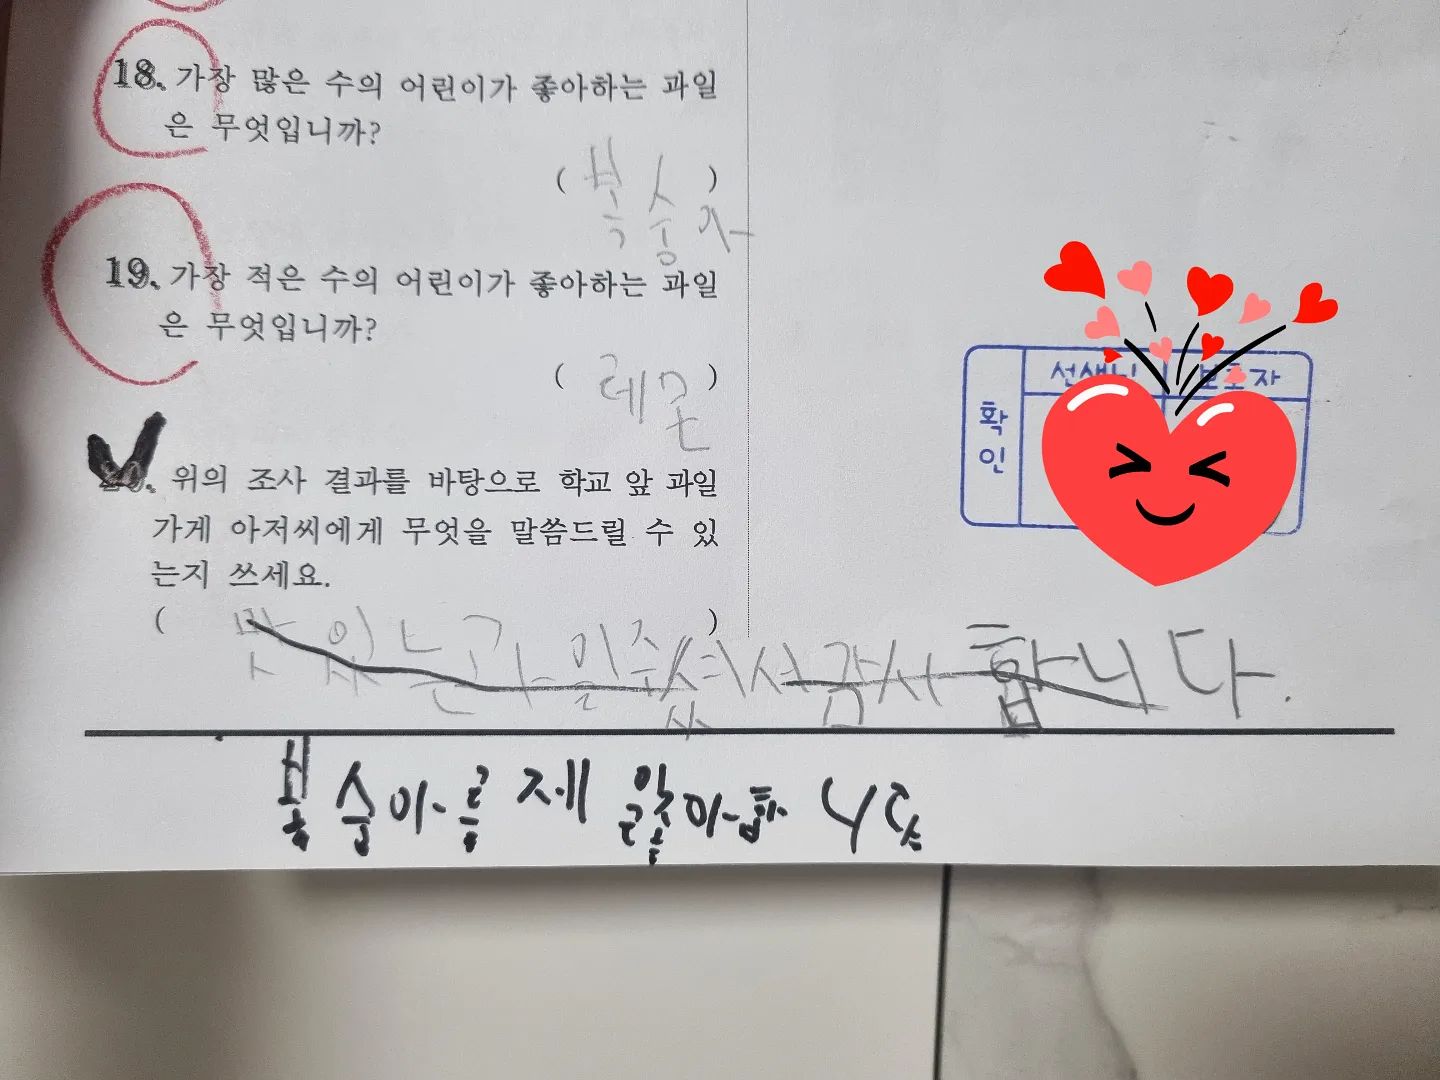 18. 가장 많은 수의 어린이가 좋아하는 과일
은 무엇입니까?
( 복숭아 )
19. 가장 적은 수의 어린이가 좋아하는 과일
은 무엇입니까?
( 레몬 )
20. 위의 조사 결과를 바탕으로 학교 앞 과일
가게 아저씨에게 무엇을 말씀드릴 수 있
는지 쓰세요.
( 맛있는 과일 주셔서 감사합니다. )
확인
선생님
보호자
복숭아를 제